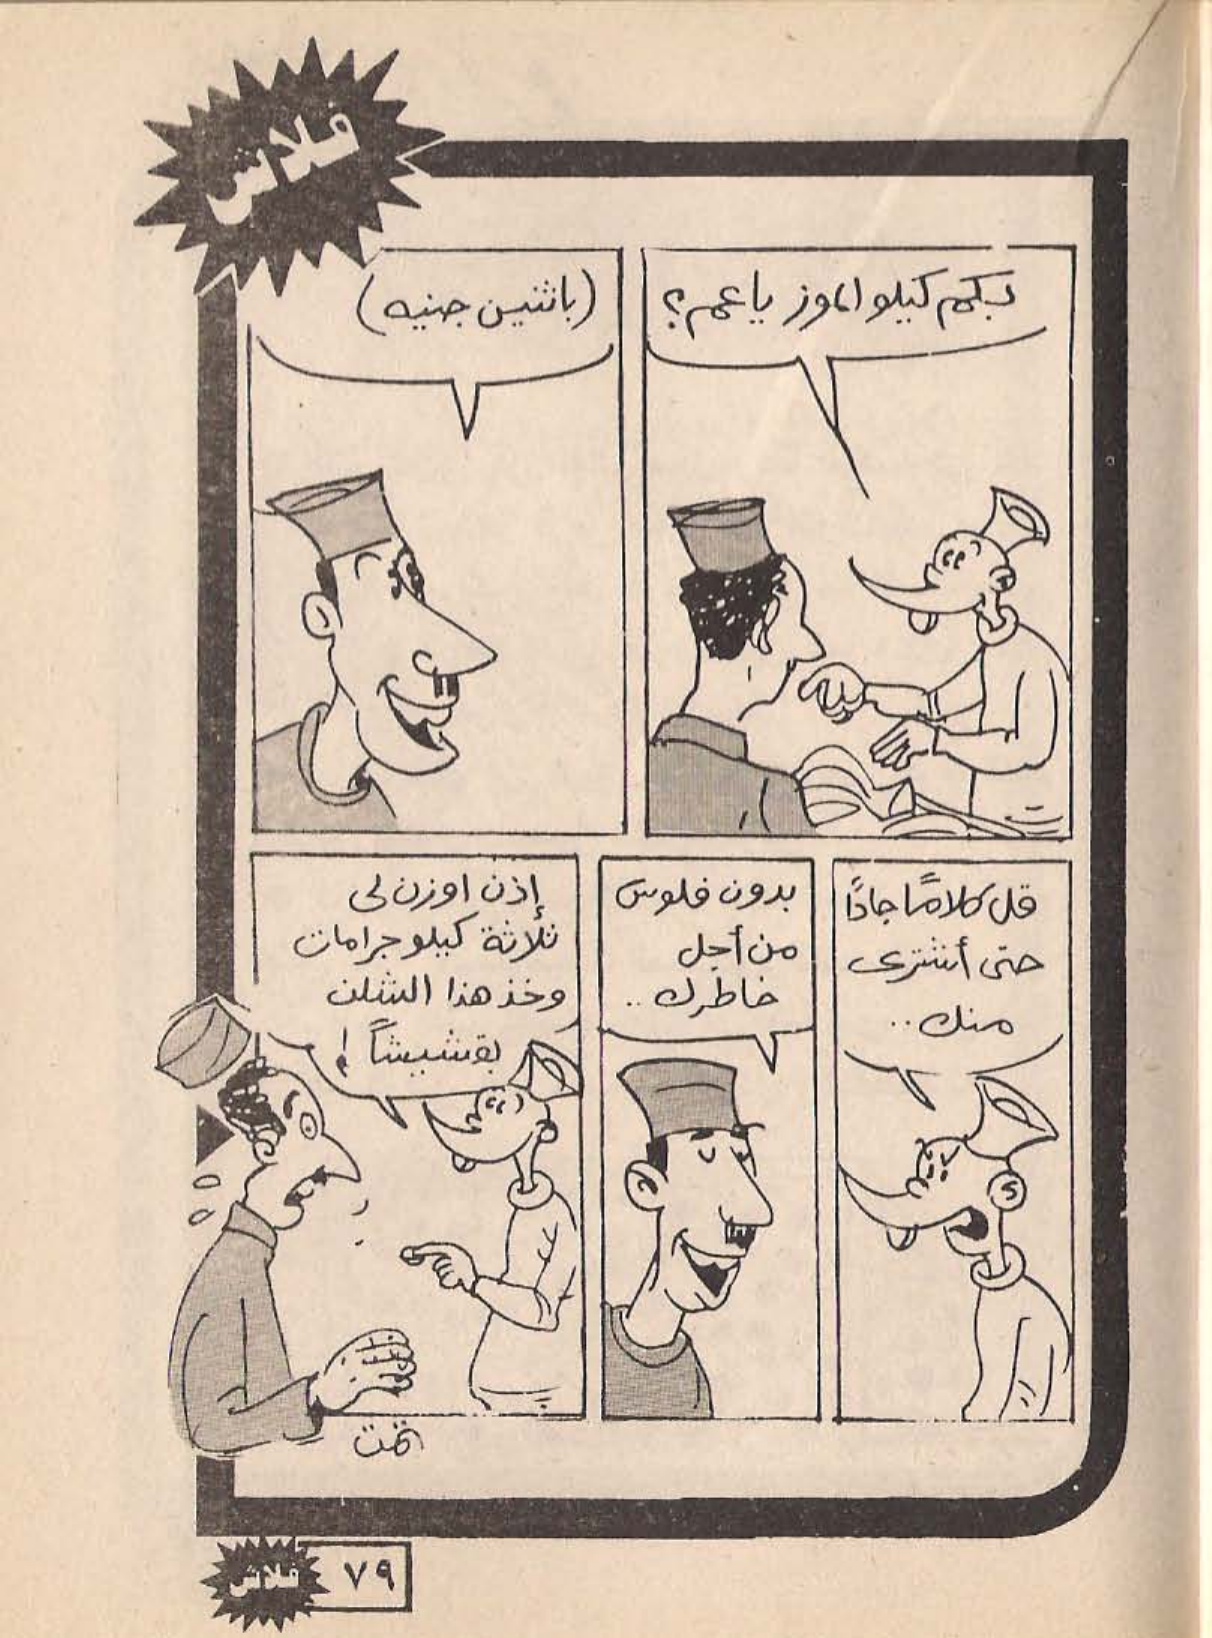 فلاش
بكم كيلو الموز يا عم؟
(باثنين جنيه)
قل كلامًا جادًا
حتى أشترى
منك..
بدون فلوس
من أجل
خاطرك..
إذن اوزن لى
ثلاثة كيلو جرامات
وخذ هذا الشلن
بقشيشاً!
تمت
فلاش
٧٩